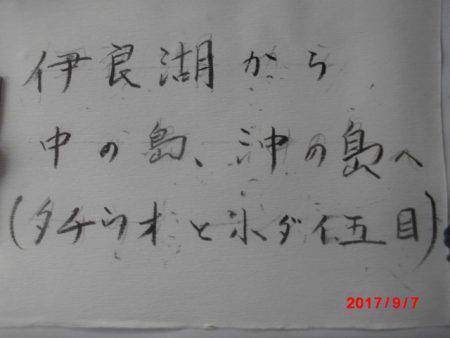 伊良湖から
中の島、沖の島へ
(タチウオと小ダイ五目)
2017/9/7